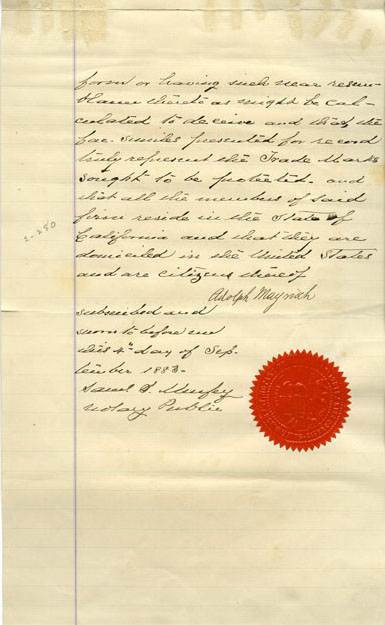 form or having such near resem-
blance thereto as might be cal-
culated to deceive and that the
fac. similes presented for record
truly represent the Trade Marks
sought to be protected. and
that all the members of said
firm reside in the State of
California and that they are
domiciled in the United States
and are citizens thereof
Adolph
subscribed and
sworn to before me
this 4th day of Sep-
tember 1883.
Saml S. Murfey
Notary Public
2-280